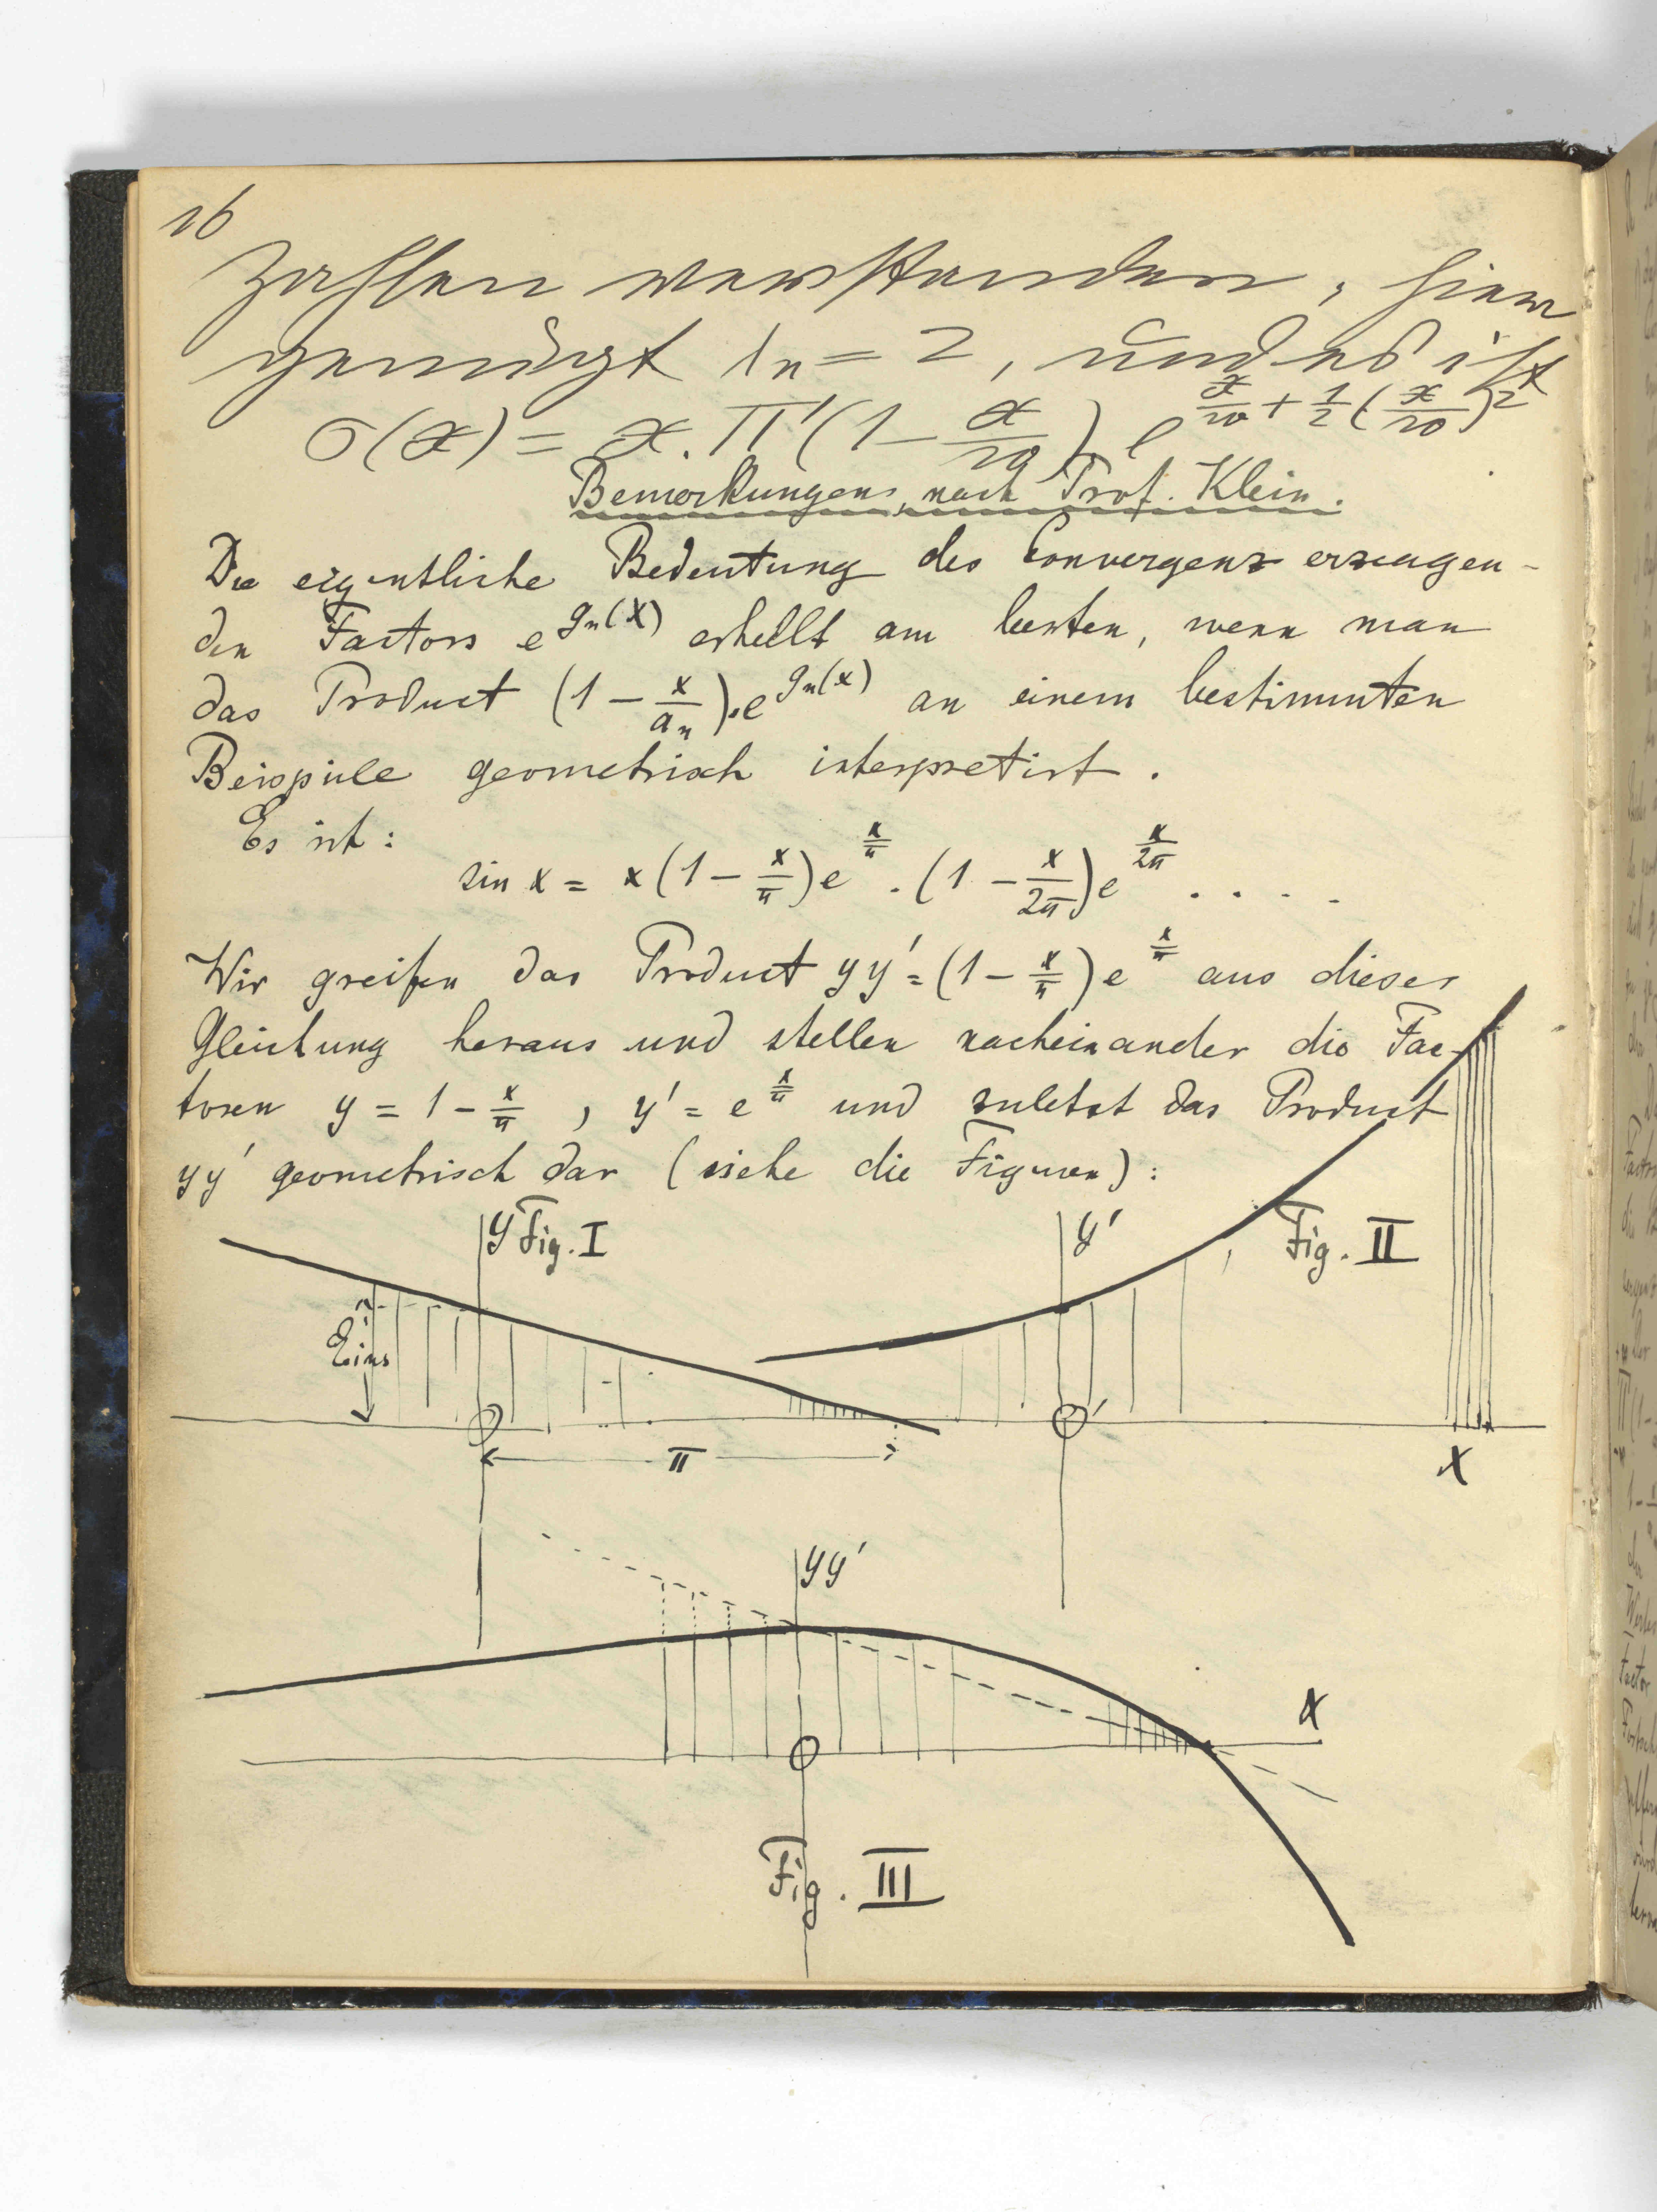 16
Zahlen verstanden, hier
genügt ln = 2, und es ist
σ(x) = x. Π'(1 - x/w) e^{x/w + 1/2 (x/w)^2}
Bemerkungen, nach Prof. Klein.
Die eigentliche Bedeutung des Convergenz erzeugen-
den Factors e^{gn(x)} erhellt am besten, wenn man
das Product (1 - x/an).e^{gn(x)} an einem bestimmten
Beispiele geometrisch interpretirt.
Es ist:
sin x = x(1 - x/π)e^{x/π} . (1 - x/2π)e^{x/2π} . . . .
Wir greifen das Product yy' = (1 - x/π)e^{x/π} aus dieser
Gleichung heraus und stellen nacheinander die Fac-
toren y = 1 - x/π , y' = e^{x/π} und zuletzt das Product
yy' geometrisch dar (siehe die Figuren):
y Fig. I
y'
Fig. II
Eins
O
O'
π
X
yy'
X
O
Fig. III